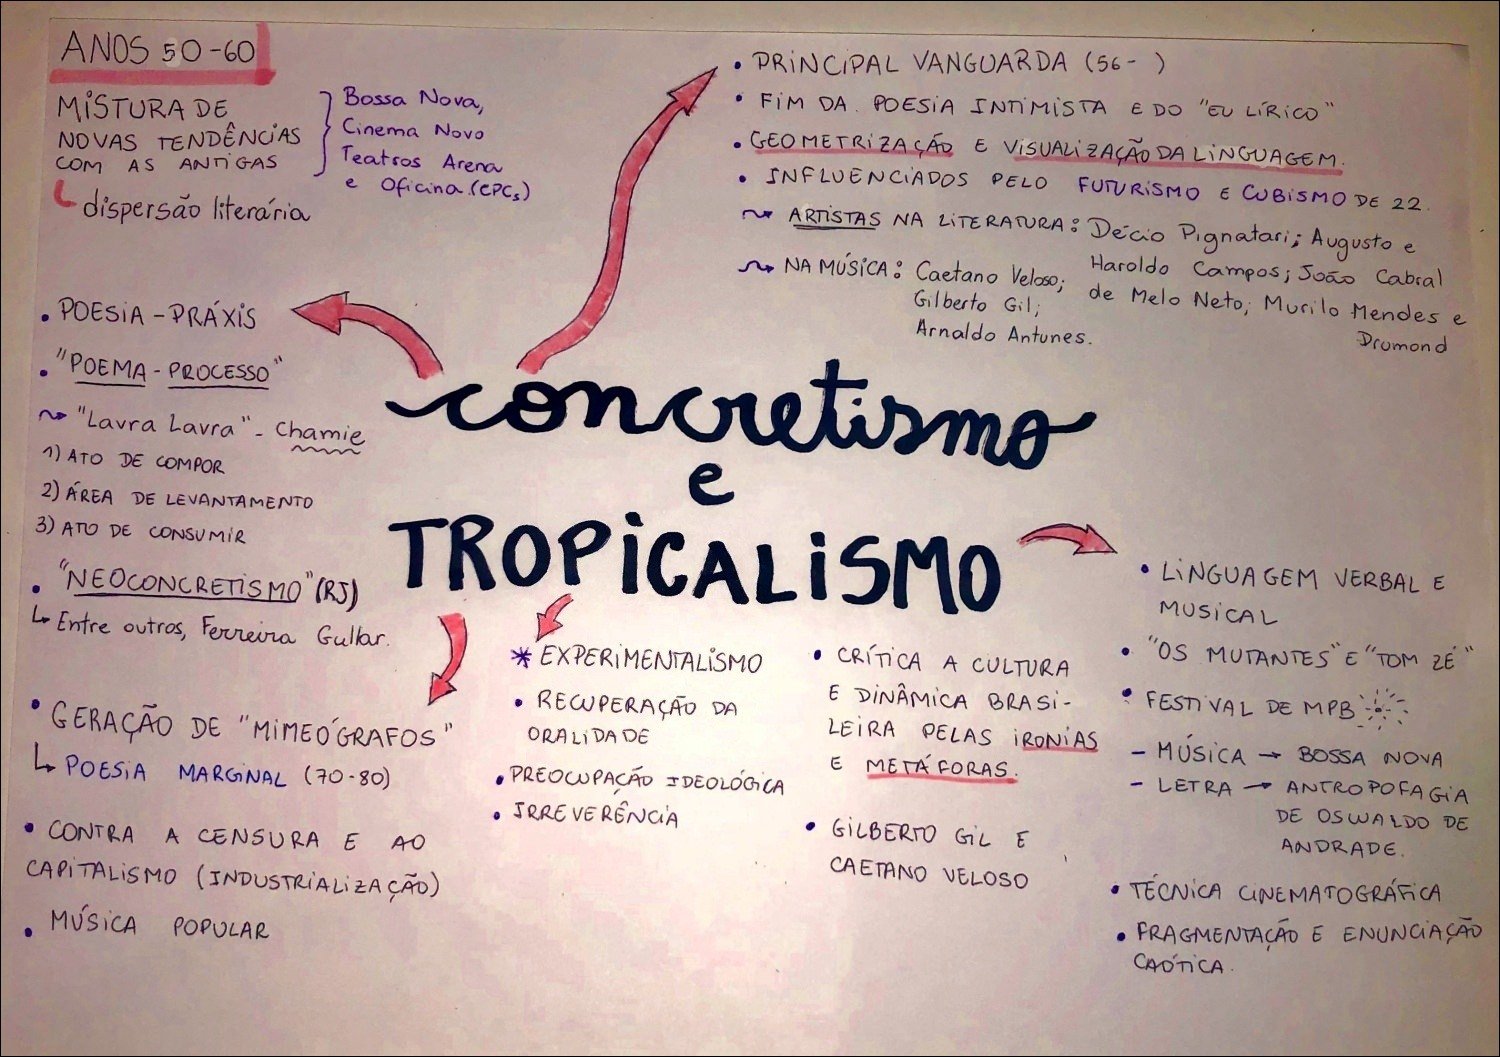 ANOS 50-60
MISTURA DE
NOVAS TENDÊNCIAS
COM AS ANTIGAS
Bossa Nova,
Cinema Novo
Teatros Arena
e Oficina (CPCs)
dispersão literária
• PRINCIPAL VANGUARDA (56- )
• FIM DA POESIA INTIMISTA E DO "EU LÍRICO"
• GEOMETRIZAÇÃO E VISUALIZAÇÃO DA LINGUAGEM.
• INFLUENCIADOS PELO FUTURISMO E CUBISMO DE 22.
ARTISTAS NA LITERATURA: Décio Pignatari; Augusto e
Haroldo Campos; João Cabral
de Melo Neto; Murilo Mendes e
Drumond
NA MÚSICA: Caetano Veloso;
Gilberto Gil;
Arnaldo Antunes.
• POESIA-PRÁXIS
• "POEMA-PROCESSO"
"Lavra Lavra" - Chamie
1) ATO DE COMPOR
2) ÁREA DE LEVANTAMENTO
3) ATO DE CONSUMIR
• "NEOCONCRETISMO" (RJ)
Entre outros, Ferreira Gullar.
concretismo
e
TROPICALISMO
• GERAÇÃO DE "MIMEÓGRAFOS"
POESIA MARGINAL (70-80)
• CONTRA A CENSURA E AO
CAPITALISMO (INDUSTRIALIZAÇÃO)
• MÚSICA POPULAR
* EXPERIMENTALISMO
• RECUPERAÇÃO DA
ORALIDADE
• PREOCUPAÇÃO IDEOLÓGICA
• IRREVERÊNCIA
• CRÍTICA A CULTURA
E DINÂMICA BRASI-
LEIRA PELAS IRONIAS
E METÁFORAS.
• GILBERTO GIL E
CAETANO VELOSO
• LINGUAGEM VERBAL E
MUSICAL
• "OS MUTANTES" E "TOM ZÉ"
• FESTIVAL DE MPB
- MÚSICA → BOSSA NOVA
- LETRA → ANTROPOFAGIA
DE OSWALDO DE
ANDRADE.
• TÉCNICA CINEMATOGRÁFICA
• FRAGMENTAÇÃO E ENUNCIAÇÃO
CAÓTICA.